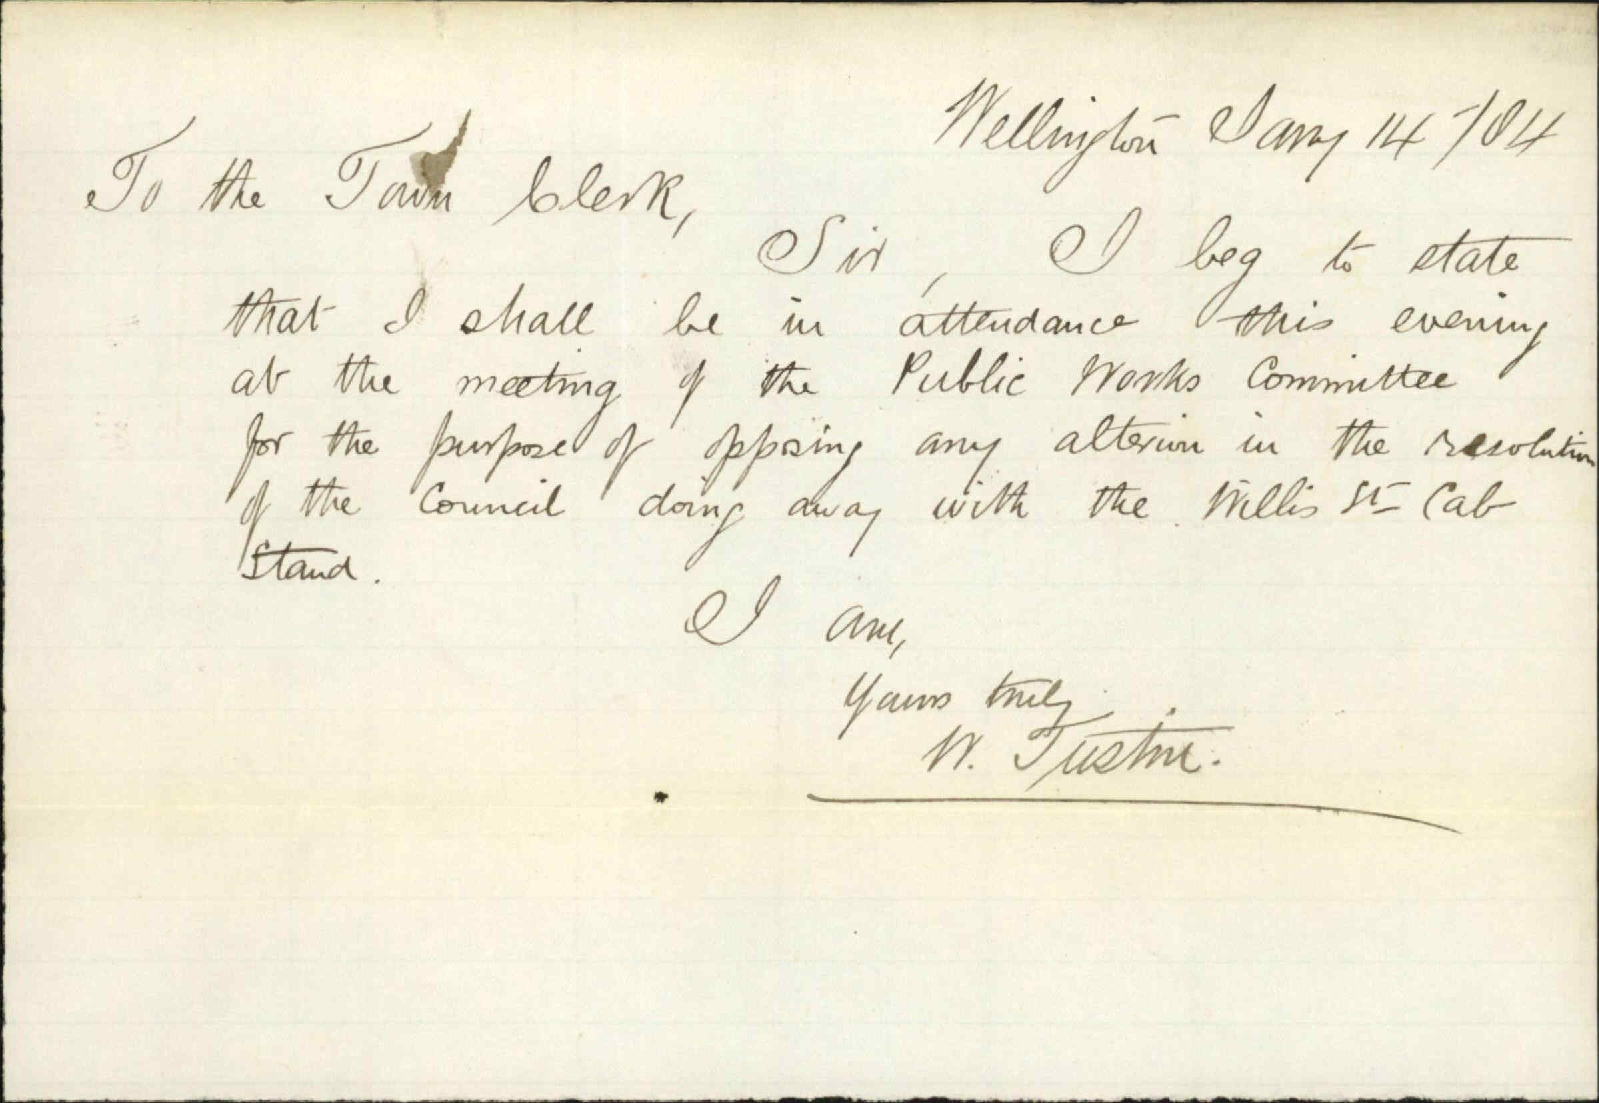 Wellington Jany 14/84
To the Town Clerk,
Sir, I beg to state
that I shall be in attendance this evening
at the meeting of the Public Works Committee
for the purpose of opposing any alterion in the resolution
of the Council doing away with the Willis St Cab
Stand.
I am,
Yours truly
W. Tustin.